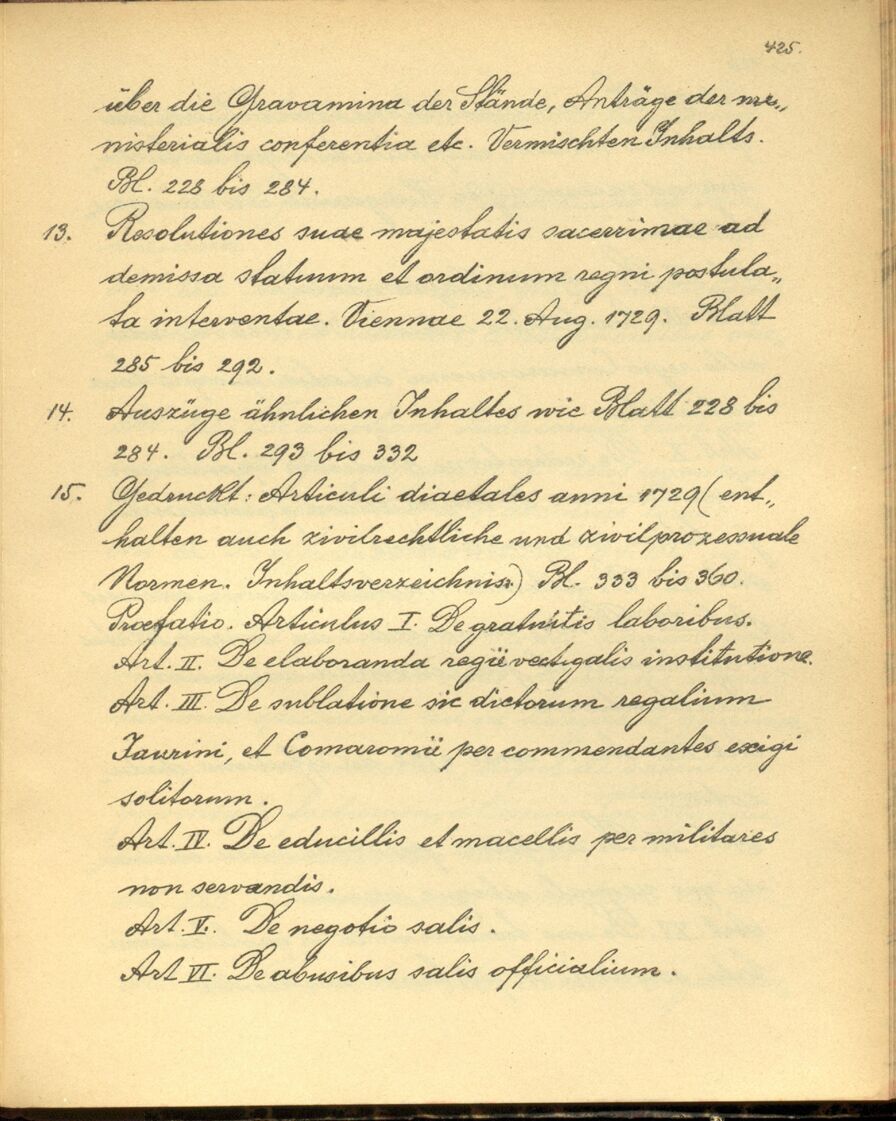 425.
über die Gravamina der Stände, Anträge der me„
nisterialis conferentia etc. Vermischten Inhalts.
Bl. 228 bis 284.
13. Resolutiones suae majestatis sacerrimae ad
demissa statuum et ordinum regni postula„
ta interventae. Viennae 22. Aug. 1729. Blatt
285 bis 292.
14. Auszüge ähnlichen Inhaltes wie Blatt 228 bis
284. Bl. 293 bis 332
15. Gedruckt: Articuli diaetales anni 1729 (ent„
halten auch zivilrechtliche und zivilprozessuale
Normen. Inhaltsverzeichnis:) Bl. 333 bis 360.
Præfatio. Articulus I. De gratuitis laboribus.
Art. II. De elaboranda regii vectigalis institutione.
Art. III. De sublatione sic dictorum regalium
Jaurini, et Comaromii per commendantes exigi
solitorum.
Art. IV. De educillis et macellis per militares
non servandis.
Art. V. De negotio salis.
Art VI. De abusibus salis officialium.